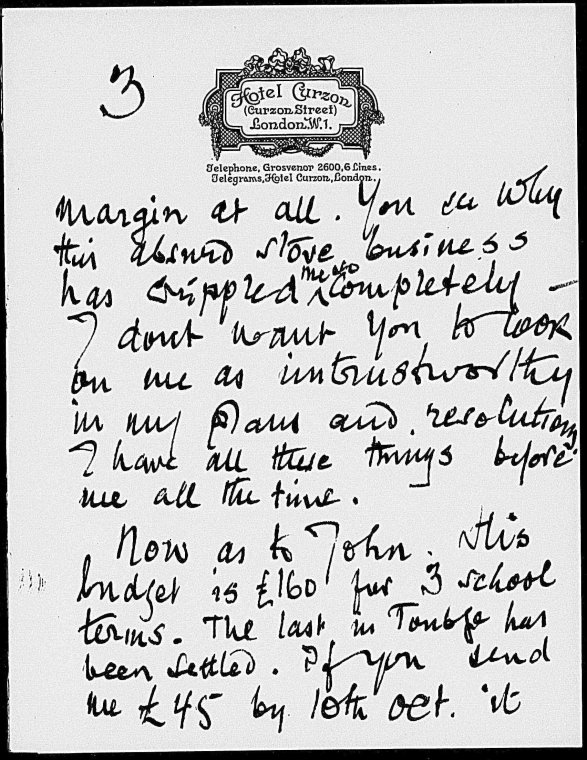 3
Hotel Curzon
(Curzon Street)
London.W.1.
Telephone, Grosvenor 2600,6 Lines.
Telegrams,Hotel Curzon,London.
margin at all. You see why
this absurd stove business
has crippled me so completely –
I dont want you to look
on me as untrustworthy
in my plans and resolutions
I have all these things before
me all the time.
Now as to John. His
budget is £160 for 3 school
terms. The last in has
been settled. If you send
me £45 by 10th Oct. it